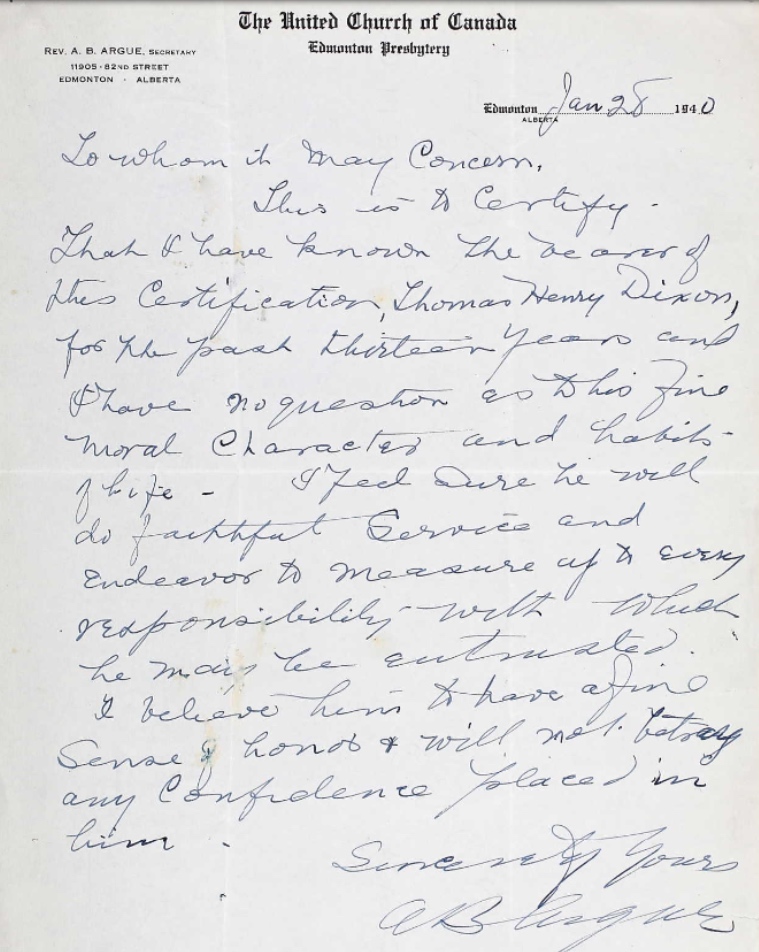 The United Church of Canada
Edmonton Presbytery
REV. A. B. ARGUE, SECRETARY
11905 - 82ND STREET
EDMONTON - ALBERTA
Edmonton Jan 28 1940
ALBERTA
To whom it May Concern,
This is to Certify -
That I have known the bearer of
this Certification, Thomas Henry Dixon,
for the past thirteen years and
I have no question as to his fine
moral Character and habits
of life - I feel sure he will
do faithful Service and
Endeavor to measure up to every
responsibility with which
he may be entrusted.
I believe him to have a fine
Sense of honor & will not betray
any Confidence placed in
him.
Sincerely Yours
A B Argue